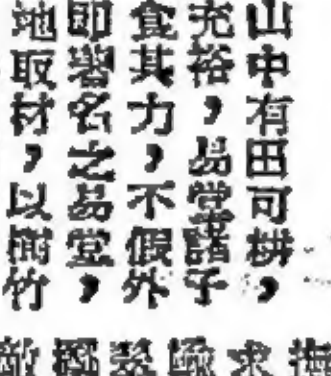 山中有田可耕，
充裕，易堂諸子
食其力，不假外
即署名之易堂，
地取材，以樹竹